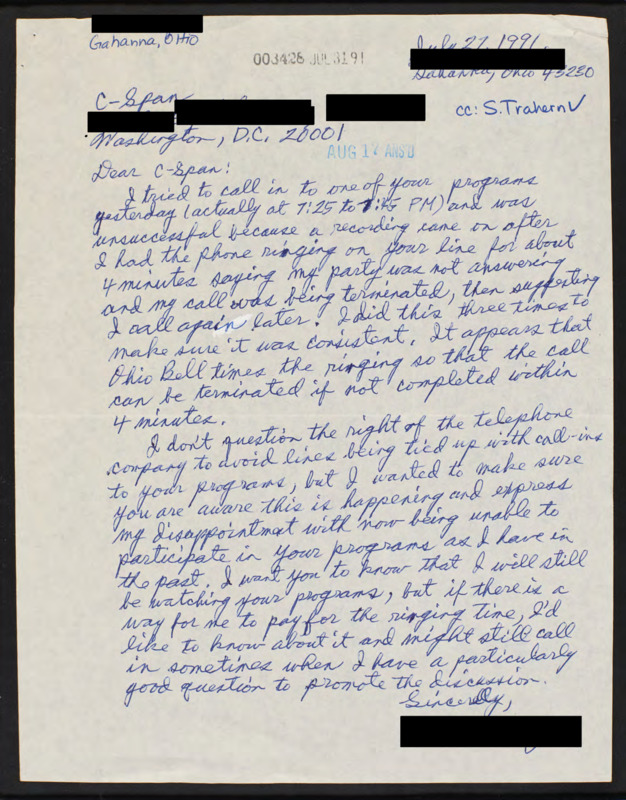 Gahanna, Ohio
003428 JUL 31 91
July 27, 1991
Gahanna, Ohio 43230
C-Span
cc: S. Trahern ✓
Washington, D.C. 20001
AUG 12 ANS'D
Dear C-Span:
I tried to call in to one of your programs
yesterday (actually at 7:25 to 7:45 PM) and was
unsuccessful because a recording came on after
I had the phone ringing on your line for about
4 minutes saying my party was not answering
and my call was being terminated, then suggesting
I call again later. I did this three times to
make sure it was consistent. It appears that
Ohio Bell times the ringing so that the call
can be terminated if not completed within
4 minutes.
I don't question the right of the telephone
company to avoid lines being tied up with call-ins
to your programs, but I wanted to make sure
you are aware this is happening and express
my disappointmat with now being unable to
participate in your programs as I have in
the past. I want you to know that I will still
be watching your programs, but if there is a
way for me to pay for the ringing time, I'd
like to know about it and might still call
in sometimes when I have a particularly
good question to promote the discussion.
Sincerely,